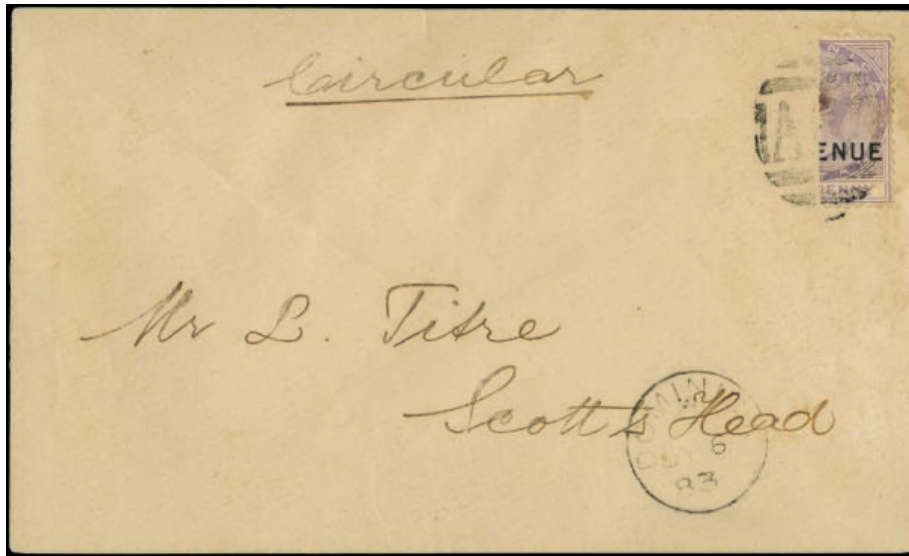 Circular
ENUE
PENNY
Mr L. Titre
Scott's Head
DOMINI
6
83